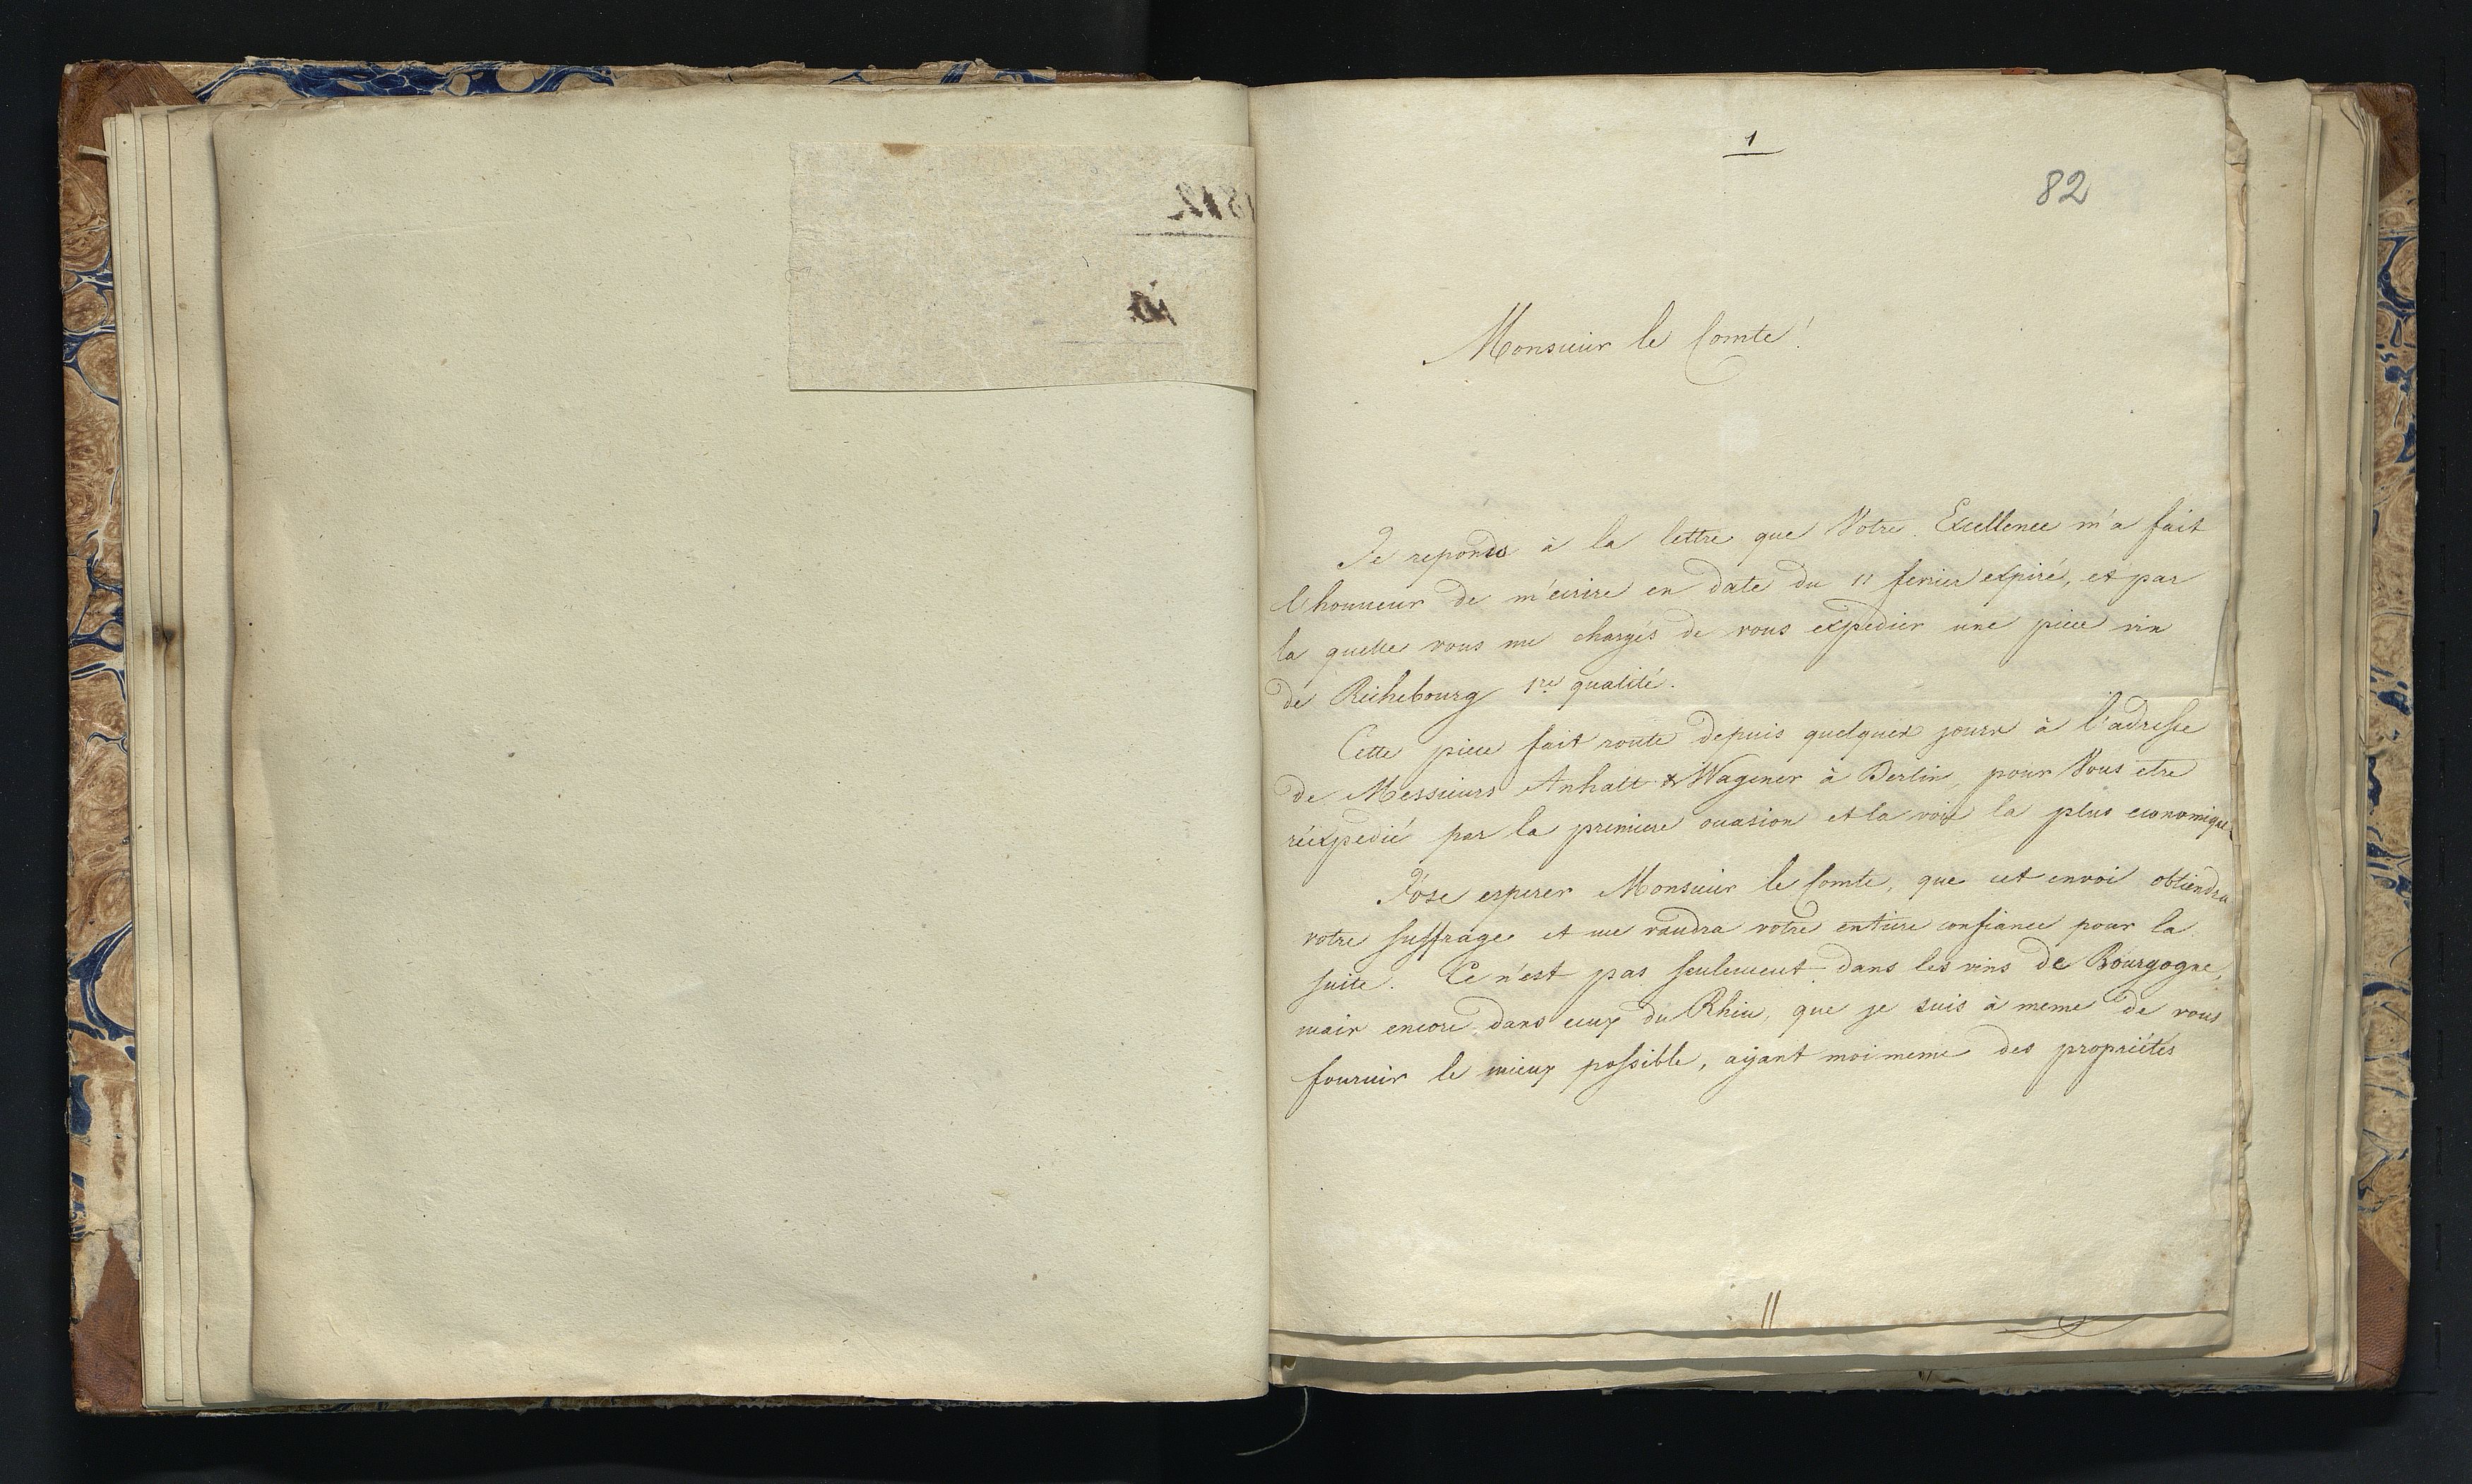 1
82
Monsieur le Comte!
Je reponds à la lettre que Votre Excellence m'a fait
l'honneur de m'écrire en date du 11 fevrier expiré, et par
la quelle vous me chargés de vous expedier une piece vin
de Richebourg 1re qualité.
Cette piece fait route depuis quelques jours à l'adresse
de Messieurs Anhalt & Wagener à Berlin, pour Vous etre
réexpedié par la premiere occasion et la voie la plus economique.
J'ose esperer Monsieur le Comte, que cet envoi obtiendra
votre suffrage et me vaudra votre entiere confiance pour la
suite. Ce n'est pas seulement dans les vins de Bourgogne,
mais encore dans ceux du Rhin, que je suis à meme de vous
fournir le mieux possible, ayant moi meme des propriétés